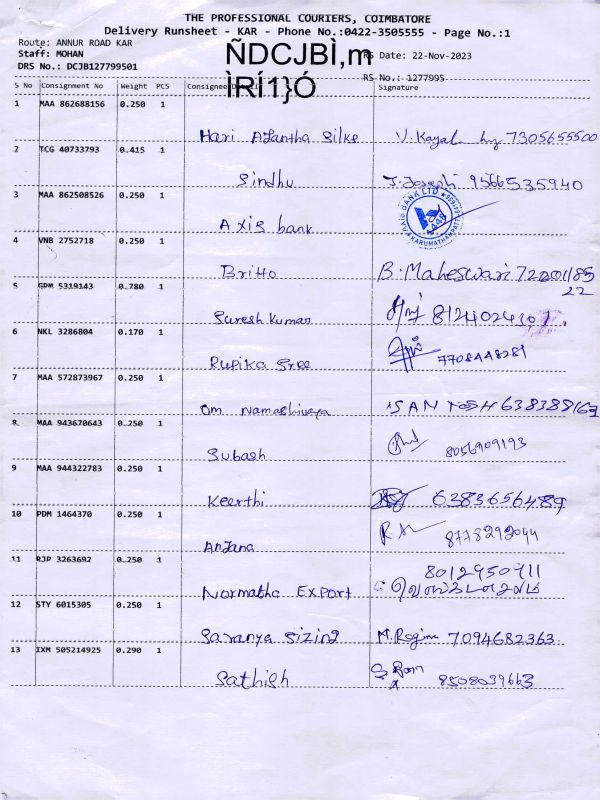 THE PROFESSIONAL COURIERS, COIMBATORE
Delivery Runsheet - KAR - Phone No.:0422-3505555 - Page No.:1
Route: ANNUR ROAD KAR
Staff: MOHAN
RS Date: 22-Nov-2023
DRS No.: DCJB127799501
ÑDCJBÌ,m
ÌRÍ1}Ó
RS No.: 1277995
S No Consignment No Weight PCS Consignee Signature
1 MAA 862688156 0.250 1
Hari Ajantha Silks V. Kayal 7305655500
2 TCG 40733793 0.415 1
Sindhu J. Joseph 9566535940
3 MAA 862508526 0.250 1
Axis bank
AXIS BANK LTD KARUMATHAMPATTI
4 VNB 2752718 0.250 1
Britto B. Maheswari
22
5 GDM 5319143 0.780 1
Suresh Kumar
6 NKL 3286804 0.170 1
Rupika Sree 7708448281
7 MAA 572873967 0.250 1
Om Namashivaya SANTOSH
8 MAA 943670643 0.250 1
Subash 8056909193
9 MAA 944322783 0.250 1
Keerthi 6383656489
10 PDM 1464370 0.250 1
Anjana 8778292044
11 RJP 3263692 0.250 1
8012950711
Normatha Export
12 STY 6015305 0.250 1
Saranya Sizing M. Regina 7094682363
13 IXM 505214925 0.290 1
Sathish 8508039663